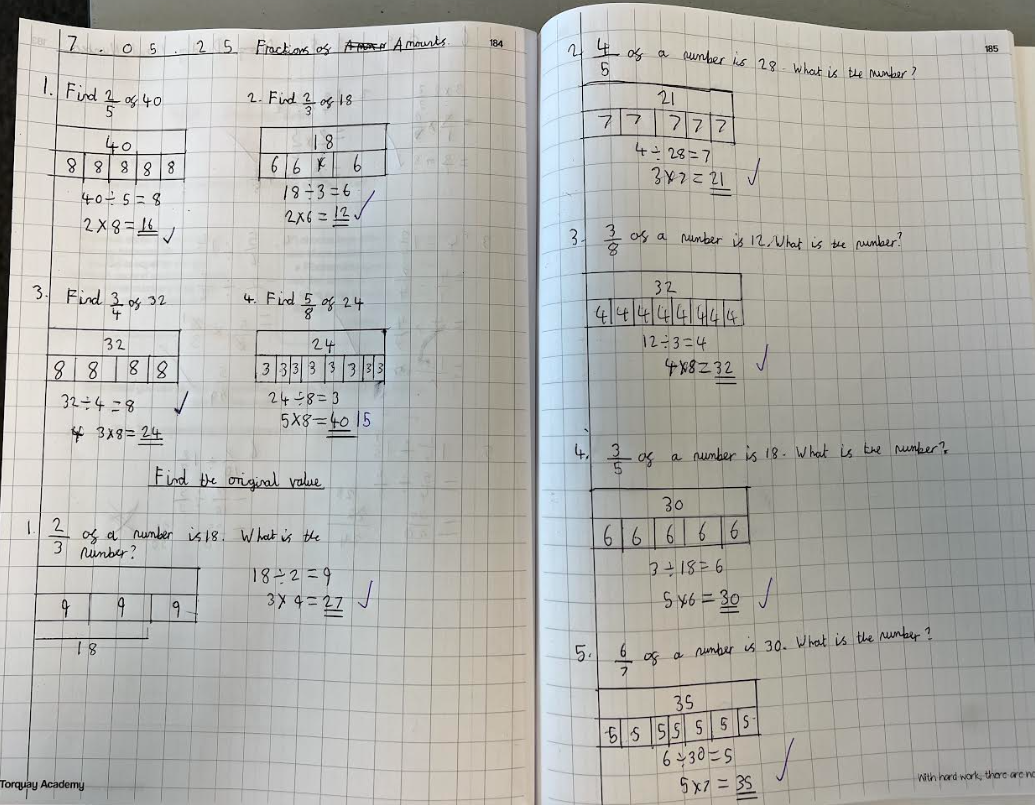 7.05.25 Fractions of Amounts.
184
1. Find 2/5 of 40
40
8 8 8 8 8
40÷5=8
2×8=16 ✓
2. Find 2/3 of 18
18
6 6 6
18÷3=6
2×6=12 ✓
3. Find 3/4 of 32
32
8 8 8 8
32÷4=8 ✓
3×8=24
4. Find 5/8 of 24
24
3 3 3 3 3 3 3 3
24÷8=3
5×8=40 15
Find the original value
1. 2/3 of a number is 18. What is the
number?
9 9 9
18
18÷2=9
3×9=27 ✓
Torquay Academy
185
2. 4/5 of a number is 28. What is the number?
21
7 7 7 7 7
4÷28=7
3×7=21 ✓
3. 3/8 of a number is 12. What is the number?
32
4 4 4 4 4 4 4 4
12÷3=4
4×8=32 ✓
4. 3/5 of a number is 18. What is the number?
30
6 6 6 6 6
3÷18=6
5×6=30 ✓
5. 6/7 of a number is 30. What is the number?
35
5 5 5 5 5 5 5
6÷30=5
5×7=35 ✓
With hard work, there are no